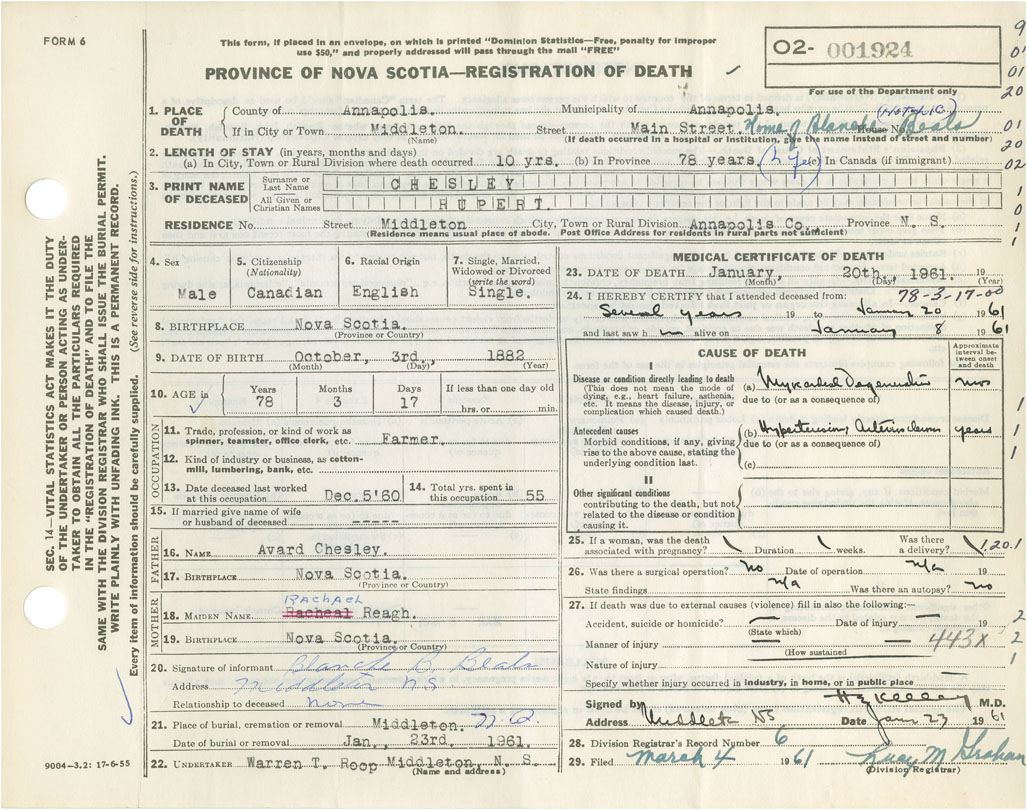 FORM 6
This form, if placed in an envelope, on which is printed "Dominion Statistics—Free, penalty for improper
use $50," and properly addressed will pass through the mail "FREE"
PROVINCE OF NOVA SCOTIA—REGISTRATION OF DEATH
O2- 001924
For use of the Department only
1. PLACE OF DEATH
County of Annapolis. Municipality of Annapolis.
If in City or Town Middleton. Street Main Street. Home of Blanche House No. Beals
(Name) (If death occurred in a hospital or institution, give the name instead of street and number)
2. LENGTH OF STAY (in years, months and days)
(a) In City, Town or Rural Division where death occurred 10 yrs. (b) In Province 78 years. (life) (c) In Canada (if immigrant)
3. PRINT NAME OF DECEASED
Surname or Last Name CHESLEY
All Given or Christian Names RUPERT.
RESIDENCE No. Street Middleton City, Town or Rural Division Annapolis Co. Province N. S.
(Residence means usual place of abode. Post Office Address for residents in rural parts not sufficient)
4. Sex
Male
5. Citizenship
(Nationality)
Canadian
6. Racial Origin
English
7. Single, Married,
Widowed or Divorced
(write the word)
Single.
8. BIRTHPLACE Nova Scotia.
(Province or Country)
9. DATE OF BIRTH October, 3rd., 1882
(Month) (Day) (Year)
10. AGE in
Years Months Days If less than one day old
78 3 17 hrs. or min.
OCCUPATION
11. Trade, profession, or kind of work as
spinner, teamster, office clerk, etc. Farmer.
12. Kind of industry or business, as cotton-
mill, lumbering, bank, etc.
13. Date deceased last worked
at this occupation Dec. 5'60
14. Total yrs. spent in
this occupation 55
15. If married give name of wife
or husband of deceased -----
FATHER
16. NAME Avard Chesley.
17. BIRTHPLACE Nova Scotia.
(Province or Country)
MOTHER
RACHAEL
18. MAIDEN NAME Racheal Reagh.
19. BIRTHPLACE Nova Scotia.
(Province or Country)
20. Signature of informant Blanche B. Beals
Address Middleton N.S
Relationship to deceased none
21. Place of burial, cremation or removal Middleton.
Date of burial or removal Jan., 23rd. 1961.
22. UNDERTAKER Warren T. Roop Middleton, N. S.
(Name and address)
MEDICAL CERTIFICATE OF DEATH
23. DATE OF DEATH January, 20th, 1961. 19
(Month) (Day) (Year)
24. I HEREBY CERTIFY that I attended deceased from: 78-3-17-00
Several years 19 to January 20 1961
and last saw h m alive on January 8 1961
CAUSE OF DEATH
Approximate interval between onset and death
I
Disease or condition directly leading to death
(This does not mean the mode of
dying, e.g., heart failure, asthenia,
etc. It means the disease, injury, or
complication which caused death.)
(a) Myocardial Degeneration mos
due to (or as a consequence of)
Antecedent causes
Morbid conditions, if any, giving
rise to the above cause, stating the
underlying condition last.
(b) Hypertension, years
due to (or as a consequence of)
(c)
II
Other significant conditions
contributing to the death, but not
related to the disease or condition
causing it.
25. If a woman, was the death
associated with pregnancy? \ Duration \ weeks. Was there
a delivery? \ 1,20.1
26. Was there a surgical operation? No Date of operation n/a 19
State findings n/a Was there an autopsy? no
27. If death was due to external causes (violence) fill in also the following:—
Accident, suicide or homicide? — Date of injury — 19
(State which)
Manner of injury — 443X
(How sustained)
Nature of injury
Specify whether injury occurred in industry, in home, or in public place
Signed by M.D.
Address Middleton NS Date Jan 23 1961
28. Division Registrar's Record Number 6
29. Filed March 4 1961 Graham
(Division Registrar)
SEC. 14—VITAL STATISTICS ACT MAKES IT THE DUTY
OF THE UNDERTAKER OR PERSON ACTING AS UNDER-
TAKER TO OBTAIN ALL THE PARTICULARS REQUIRED
IN THE "REGISTRATION OF DEATH" AND TO FILE THE
SAME WITH THE DIVISION REGISTRAR WHO SHALL ISSUE THE BURIAL PERMIT.
WRITE PLAINLY WITH UNFADING INK. THIS IS A PERMANENT RECORD.
Every item of information should be carefully supplied. (See reverse side for instructions.)
9004—3.2: 17-6-55
9
0
01
20
01
20
02
1
0
1
1
1
1
1
2
2
1